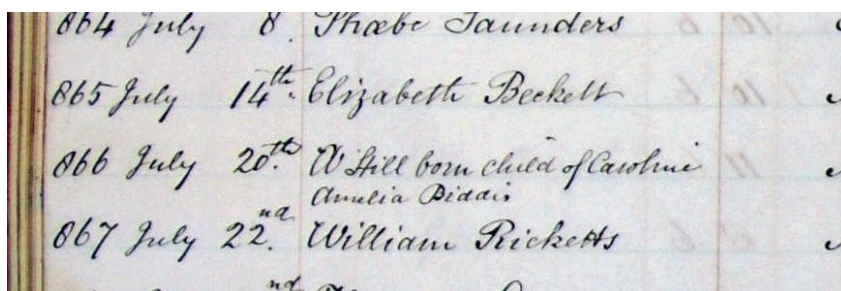 864 July 8. Phœbe Saunders
865 July 14th. Elizabeth Beckett
866 July 20th. A Still born child of Caroline
Amelia
867 July 22nd. William Ricketts
nd